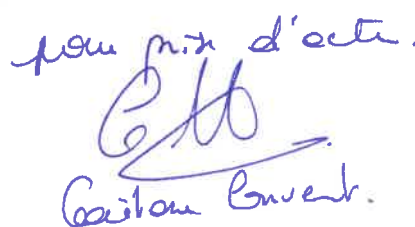 pour prise d'acte.
Gaëtane Convent.